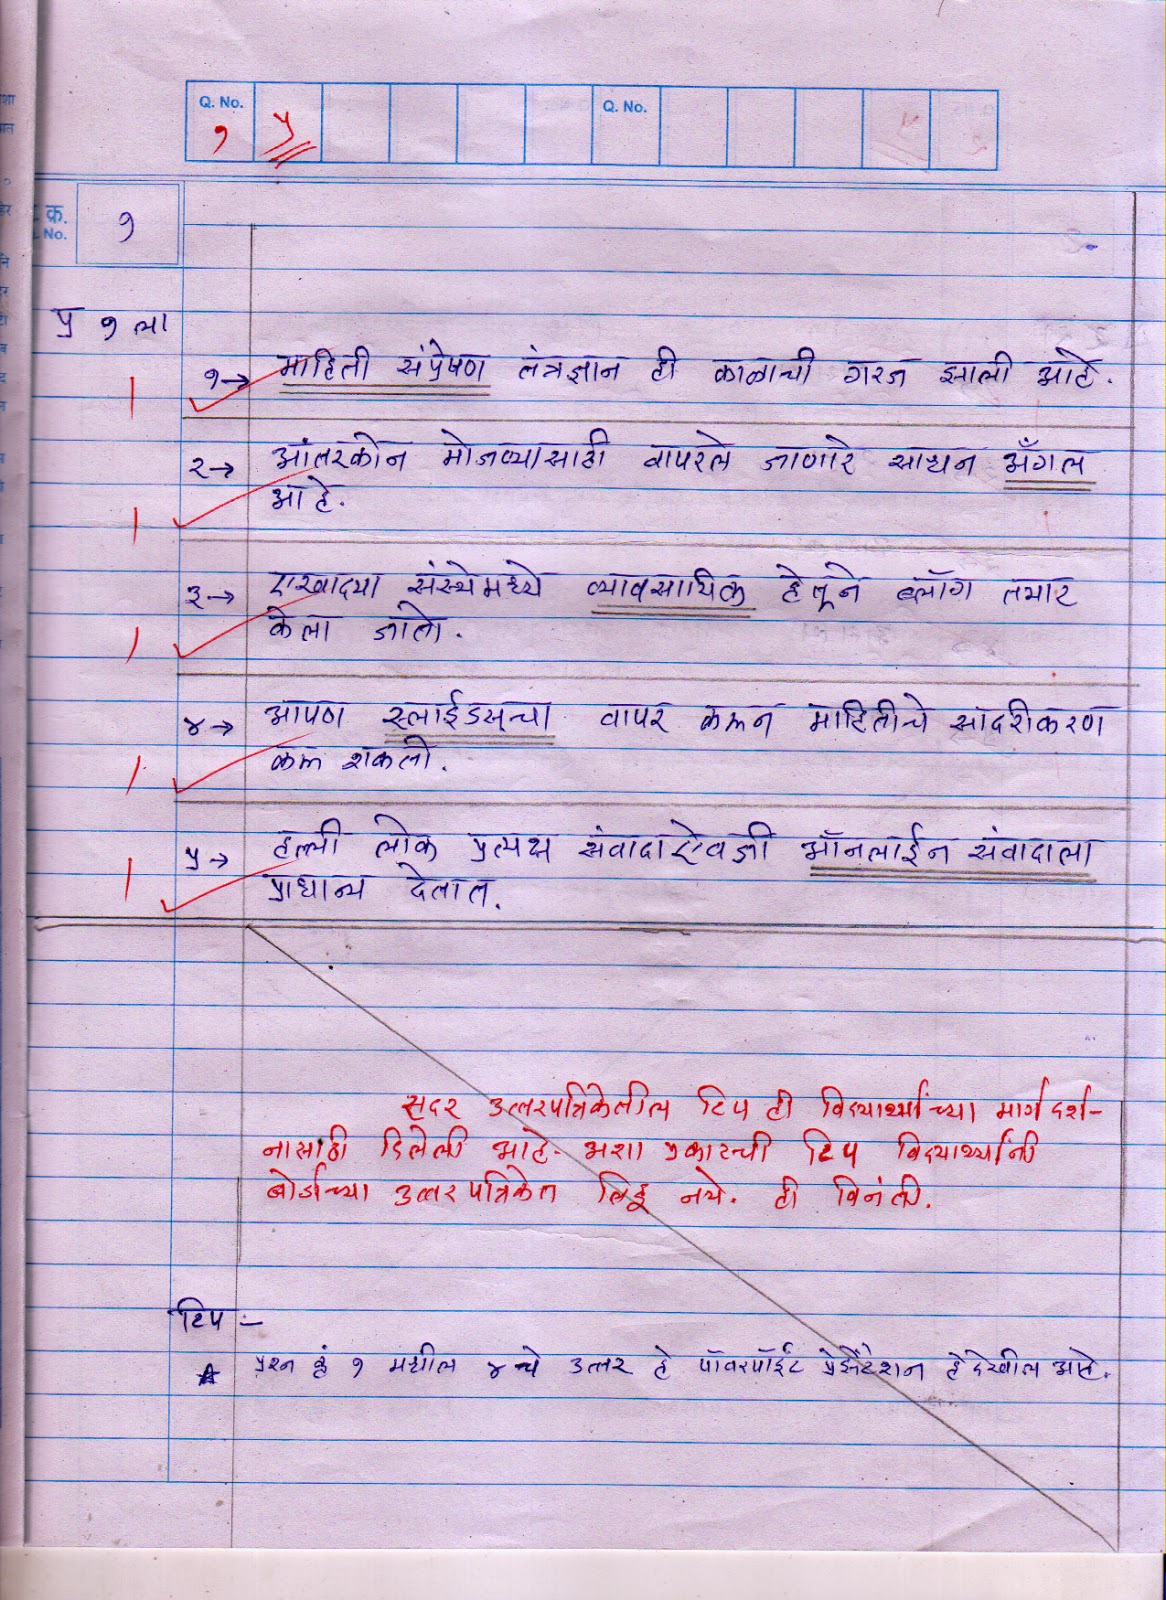 Q. No. Q. No.
१ ५
क्र. १
No.
प्र १ ला
१→ माहिती संप्रेषण तंत्रज्ञान ही काळाची गरज झाली आहे.
1
२→ आंतरकोन मोजण्यासाठी वापरले जाणारे साधन अँगल
आहे.
1
३→ एखाद्या संस्थेमध्ये व्यावसायिक हेतूने ब्लॉग तयार
केला जातो.
1
४→ आपण स्लाईडस्‌चा वापर करून माहितीचे सादरीकरण
करू शकतो.
1
५→ हल्ली लोक प्रत्यक्ष संवादाऐवजी ऑनलाईन संवादाला
प्राधान्य देतात.
1
सदर उत्तरपत्रिकेतील टिप ही विद्यार्थ्यांच्या मार्गदर्श-
नासाठी दिलेली आहे. अशा प्रकारची टिप विद्यार्थ्यांनी
बोर्डाच्या उत्तरपत्रिकेत लिहू नये. ही विनंती.
टिप :-
प्रश्न क्रं १ मधील ४ चे उत्तर हे पॉवरपॉईंट प्रेझेंटेशन हे देखील आहे.